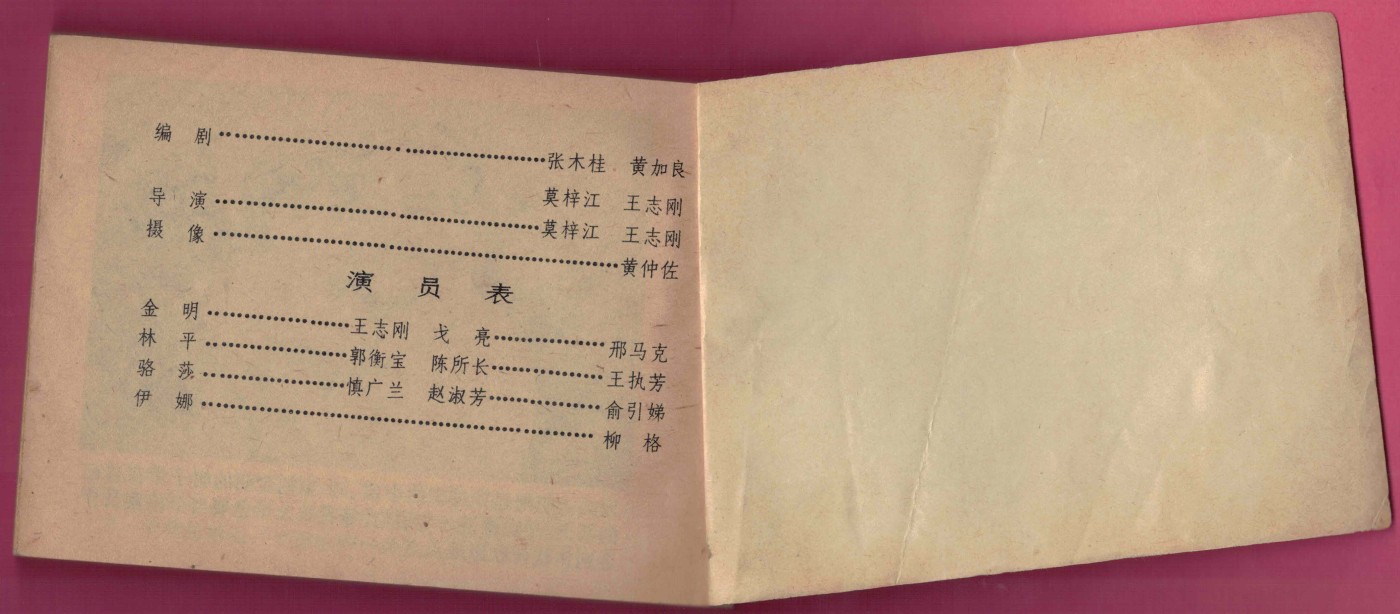 编 剧……………………张木桂 黄加良
莫梓江 王志刚
导 演……………………莫梓江 王志刚
摄 像……………………黄仲佐
演 员 表
金 明…………王志刚 戈 亮…………邢马克
林 平…………郭衡宝 陈所长…………王执芳
骆 莎…………慎广兰 赵淑芳…………俞引娣
伊 娜……………………柳 格